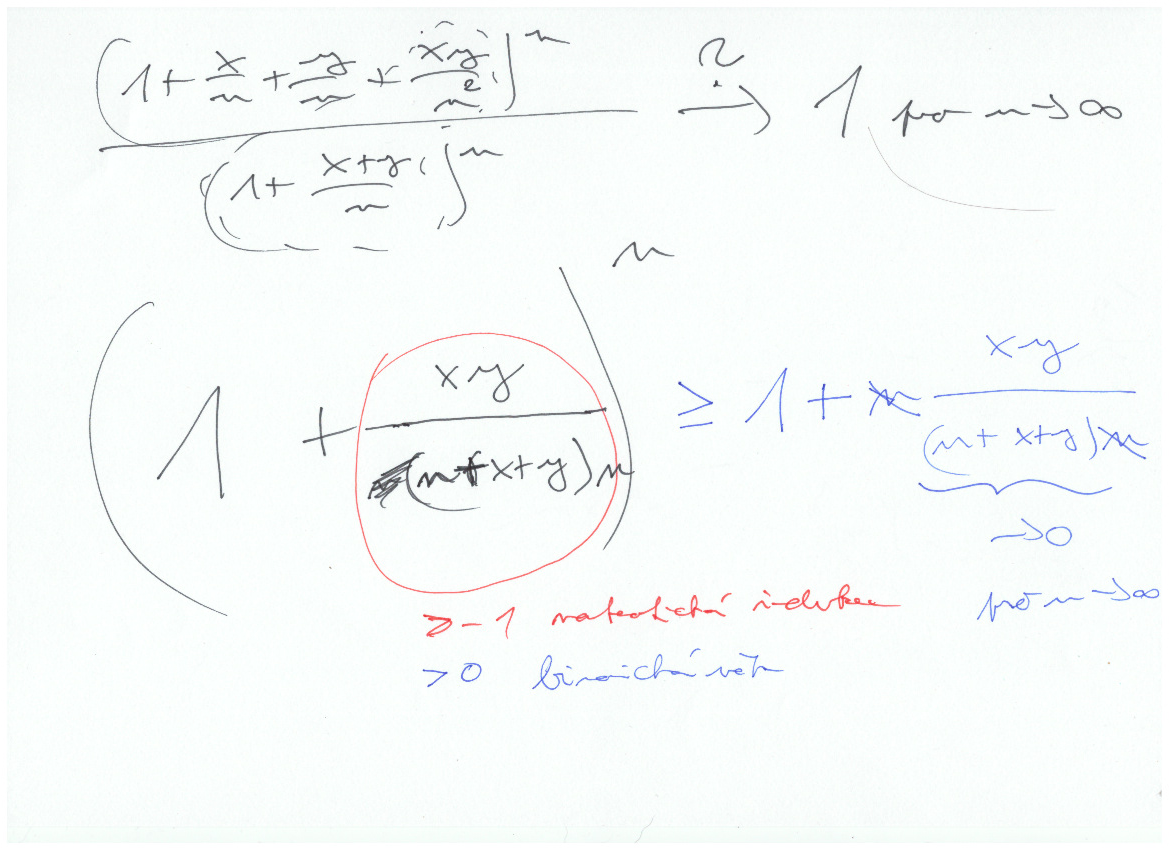 (1 + x/n + y/n + xy/n²)^n / (1 + (x+y)/n)^n →? 1 pro n→∞
(1 + xy/((n+x+y)n))^n ≥ 1 + n xy/((n+x+y)n)
→0
≥ -1 matematická indukce pro n→∞
>0 binomická věta